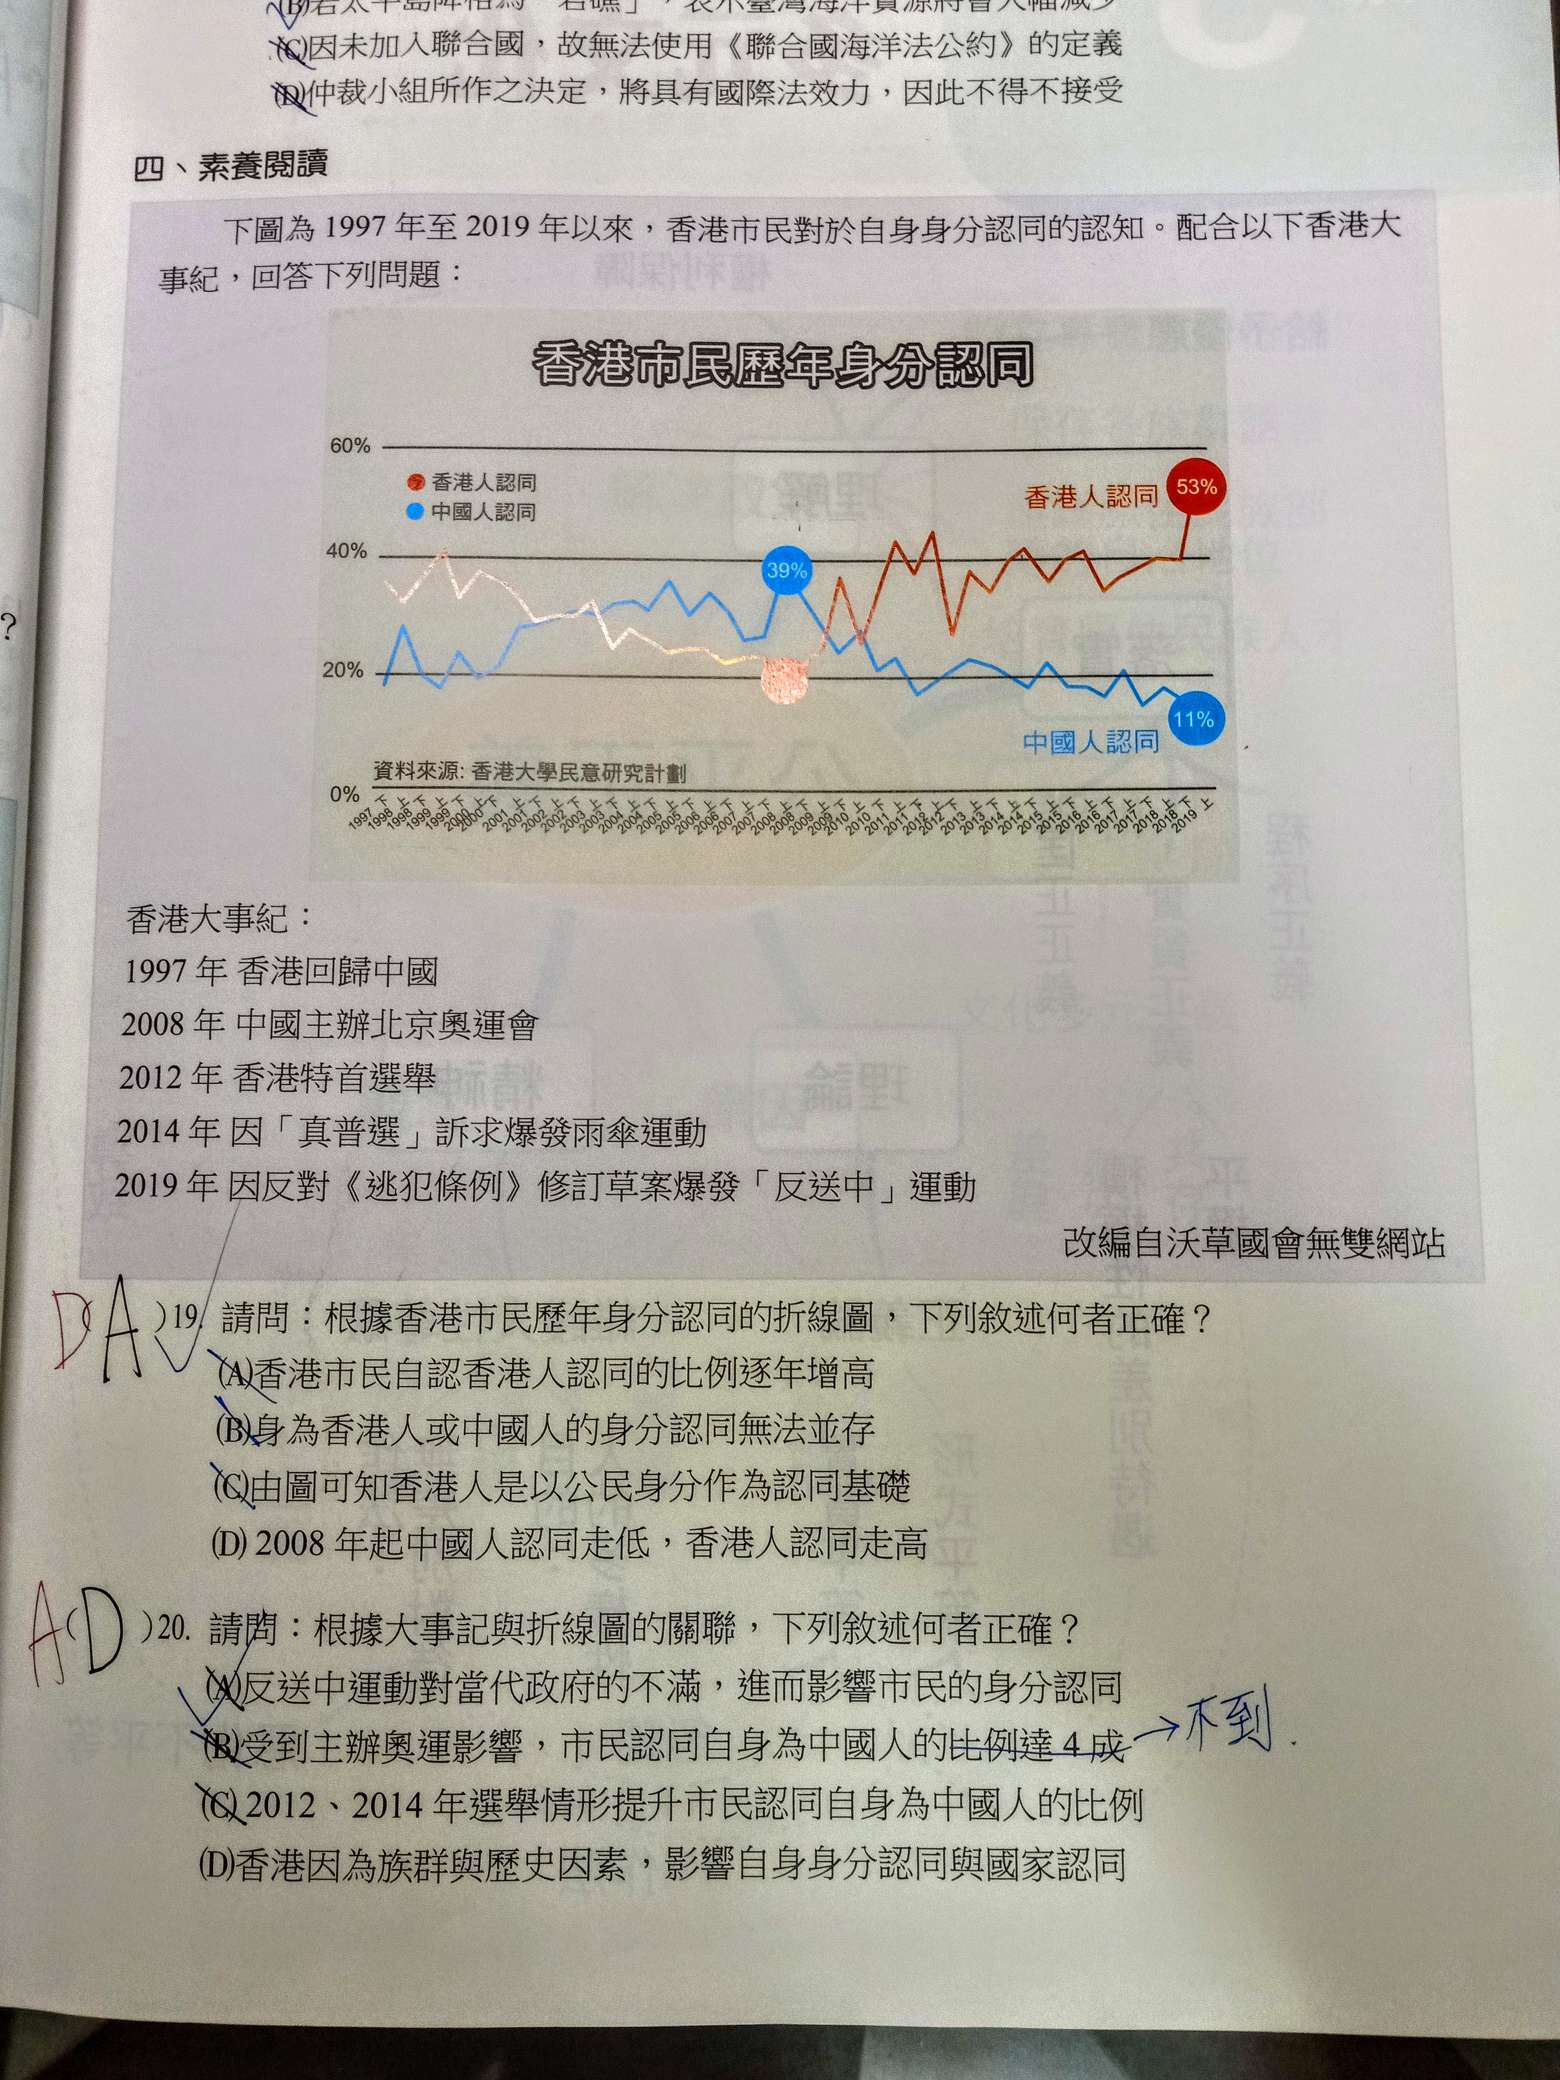 (B)若太平島降格為「岩礁」，表示臺灣海洋資源將會大幅減少
(C)因未加入聯合國，故無法使用《聯合國海洋法公約》的定義
(D)仲裁小組所作之決定，將具有國際法效力，因此不得不接受
四、素養閱讀
下圖為 1997 年至 2019 年以來，香港市民對於自身身分認同的認知。配合以下香港大
事紀，回答下列問題：
香港市民歷年身分認同
60%
香港人認同
中國人認同
香港人認同 53%
40%
39%
20%
中國人認同 11%
資料來源: 香港大學民意研究計劃
0%
1997 下 1998 上 1998 下 1999 上 1999 下 2000 上 2000 下 2001 上 2001 下 2002 上 2002 下 2003 上 2003 下 2004 上 2004 下 2005 上 2005 下 2006 上 2006 下 2007 上 2007 下 2008 上 2008 下 2009 上 2009 下 2010 上 2010 下 2011 上 2011 下 2012 上 2012 下 2013 上 2013 下 2014 上 2014 下 2015 上 2015 下 2016 上 2016 下 2017 上 2017 下 2018 上 2018 下 2019 上
香港大事紀：
1997 年 香港回歸中國
2008 年 中國主辦北京奧運會
2012 年 香港特首選舉
2014 年 因「真普選」訴求爆發雨傘運動
2019 年 因反對《逃犯條例》修訂草案爆發「反送中」運動
改編自沃草國會無雙網站
D A )19. 請問：根據香港市民歷年身分認同的折線圖，下列敘述何者正確？
(A)香港市民自認香港人認同的比例逐年增高
(B)身為香港人或中國人的身分認同無法並存
(C)由圖可知香港人是以公民身分作為認同基礎
(D) 2008 年起中國人認同走低，香港人認同走高
A (D )20. 請問：根據大事記與折線圖的關聯，下列敘述何者正確？
(A)反送中運動對當代政府的不滿，進而影響市民的身分認同
(B)受到主辦奧運影響，市民認同自身為中國人的比例達 4 成 →不到
(C) 2012、2014 年選舉情形提升市民認同自身為中國人的比例
(D)香港因為族群與歷史因素，影響自身身分認同與國家認同
?